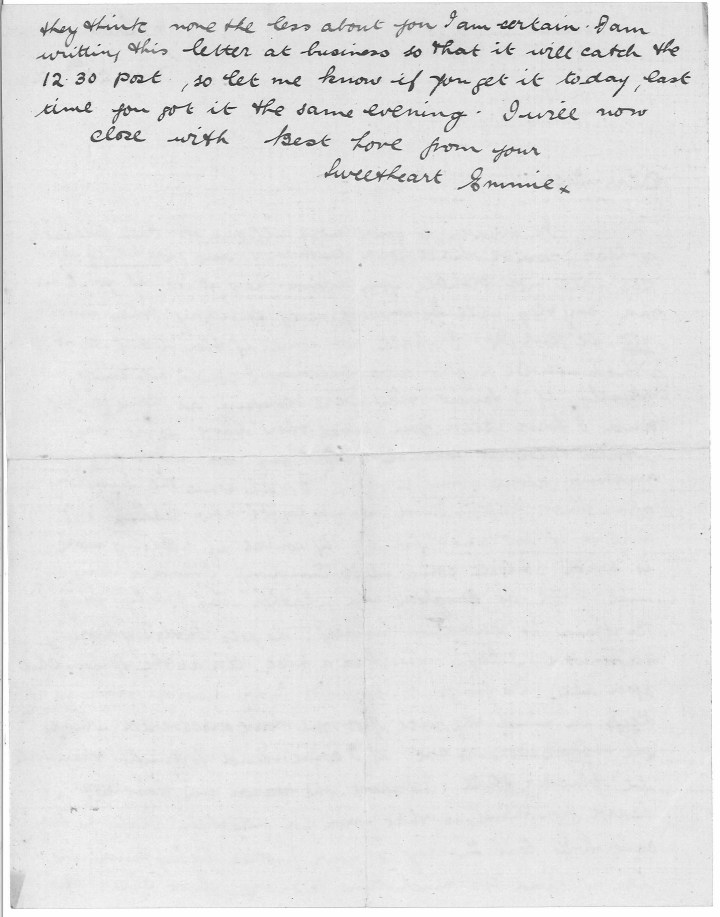 they think none the less about you I am certain. I am
writing this letter at business so that it will catch the
12.30 post, so let me know if you get it today, last
time you got it the same evening. I will now
close with Best Love from your
Sweetheart Emmie x